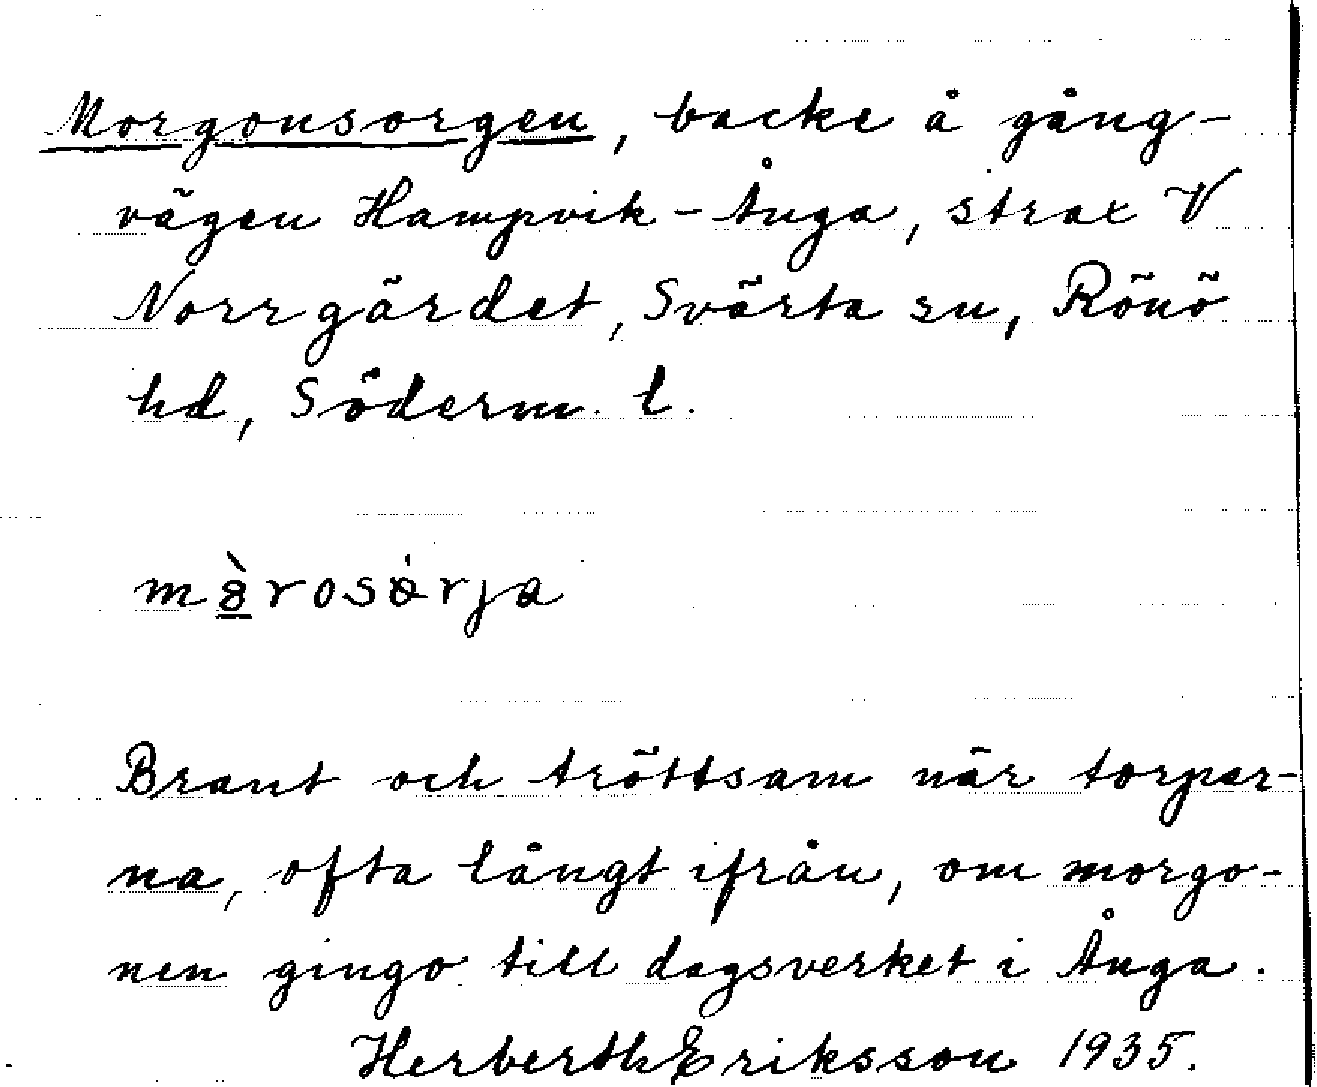 Morgonsorgen, backe å gång-
vägen Hampvik-Ånga, strax V
Norrgärdet, Svärta sn, Rönö
hd, Söderm. l.
mòrosȯrja
Brant och tröttsam när torpar-
na, ofta långt ifrån, om morgo-
nen gingo till dagsverket i Ånga.
Herberth Eriksson 1935.